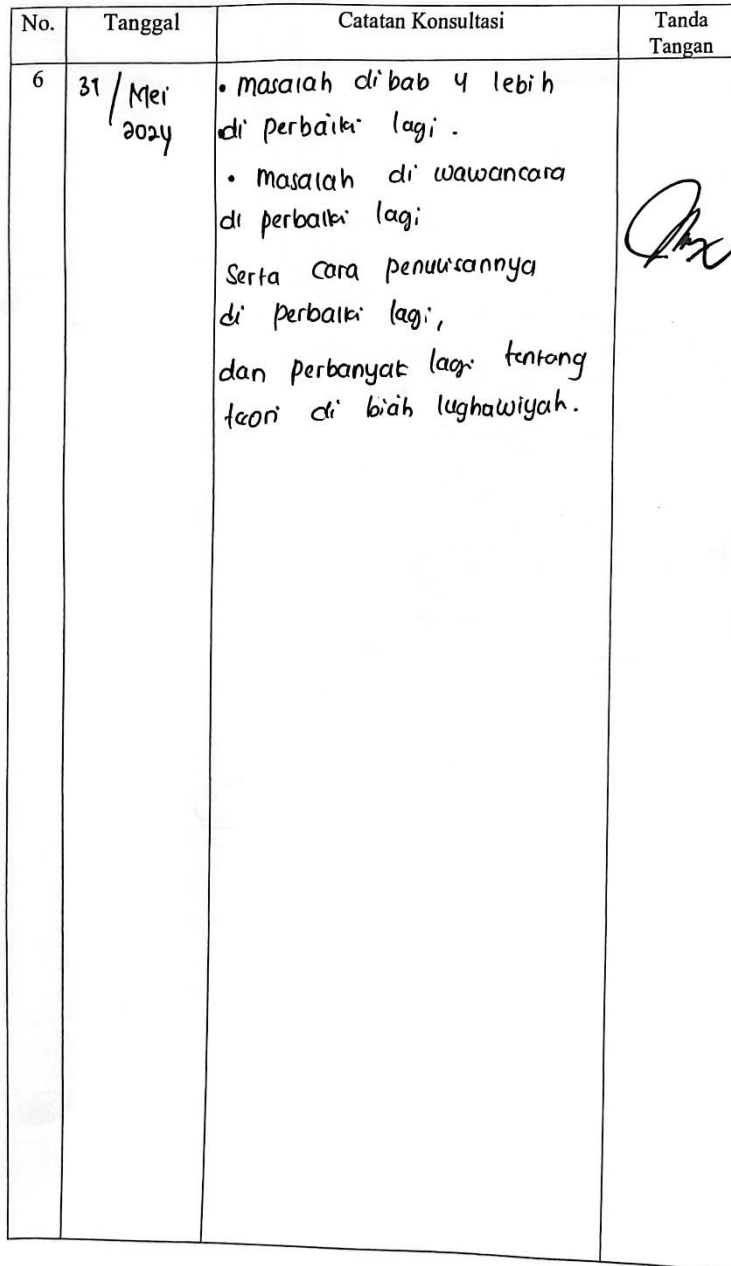 No. Tanggal Catatan Konsultasi Tanda
Tangan
6 31 / Mei • masalah di bab 4 lebih
2024 di perbaiki lagi.
• masalah di wawancara
di perbaiki lagi
Serta cara penulisannya
di perbaiki lagi,
dan perbanyak lagi tentang
teori di biah lughawiyah.